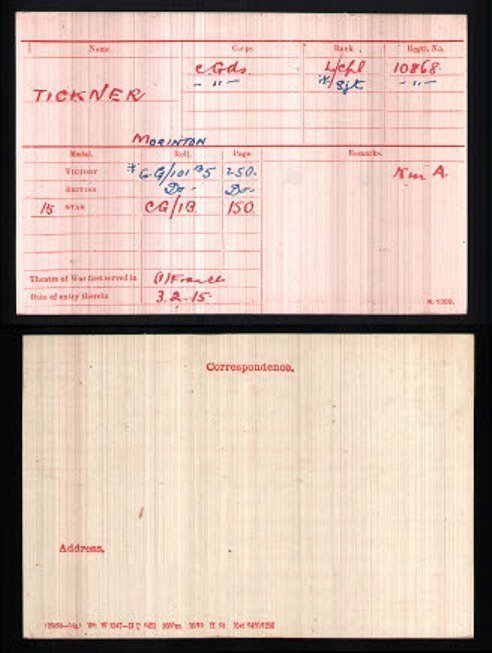 Name. Corps. Rank. Regtl. No.
C.Gds. L/Cpl 10868
TICKNER — " — */Sjt — " —
MORINTON
Medal. Roll. Page. Remarks.
VICTORY * 250. A.
BRITISH Do - Do -
15 STAR CG/1B. 150.
Theatre of War first served in (1) France
Date of entry therein 3.2.15.
Correspondence.
Address.